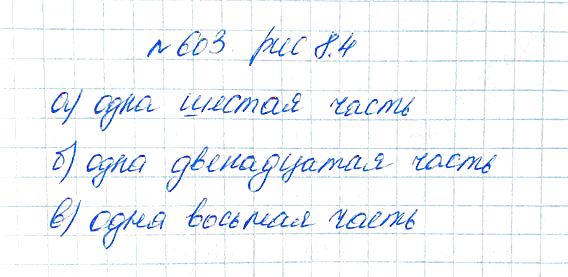 №603. рис 8.4
а) одна шестая часть
б) одна двенадцатая часть
в) одна восьмая часть